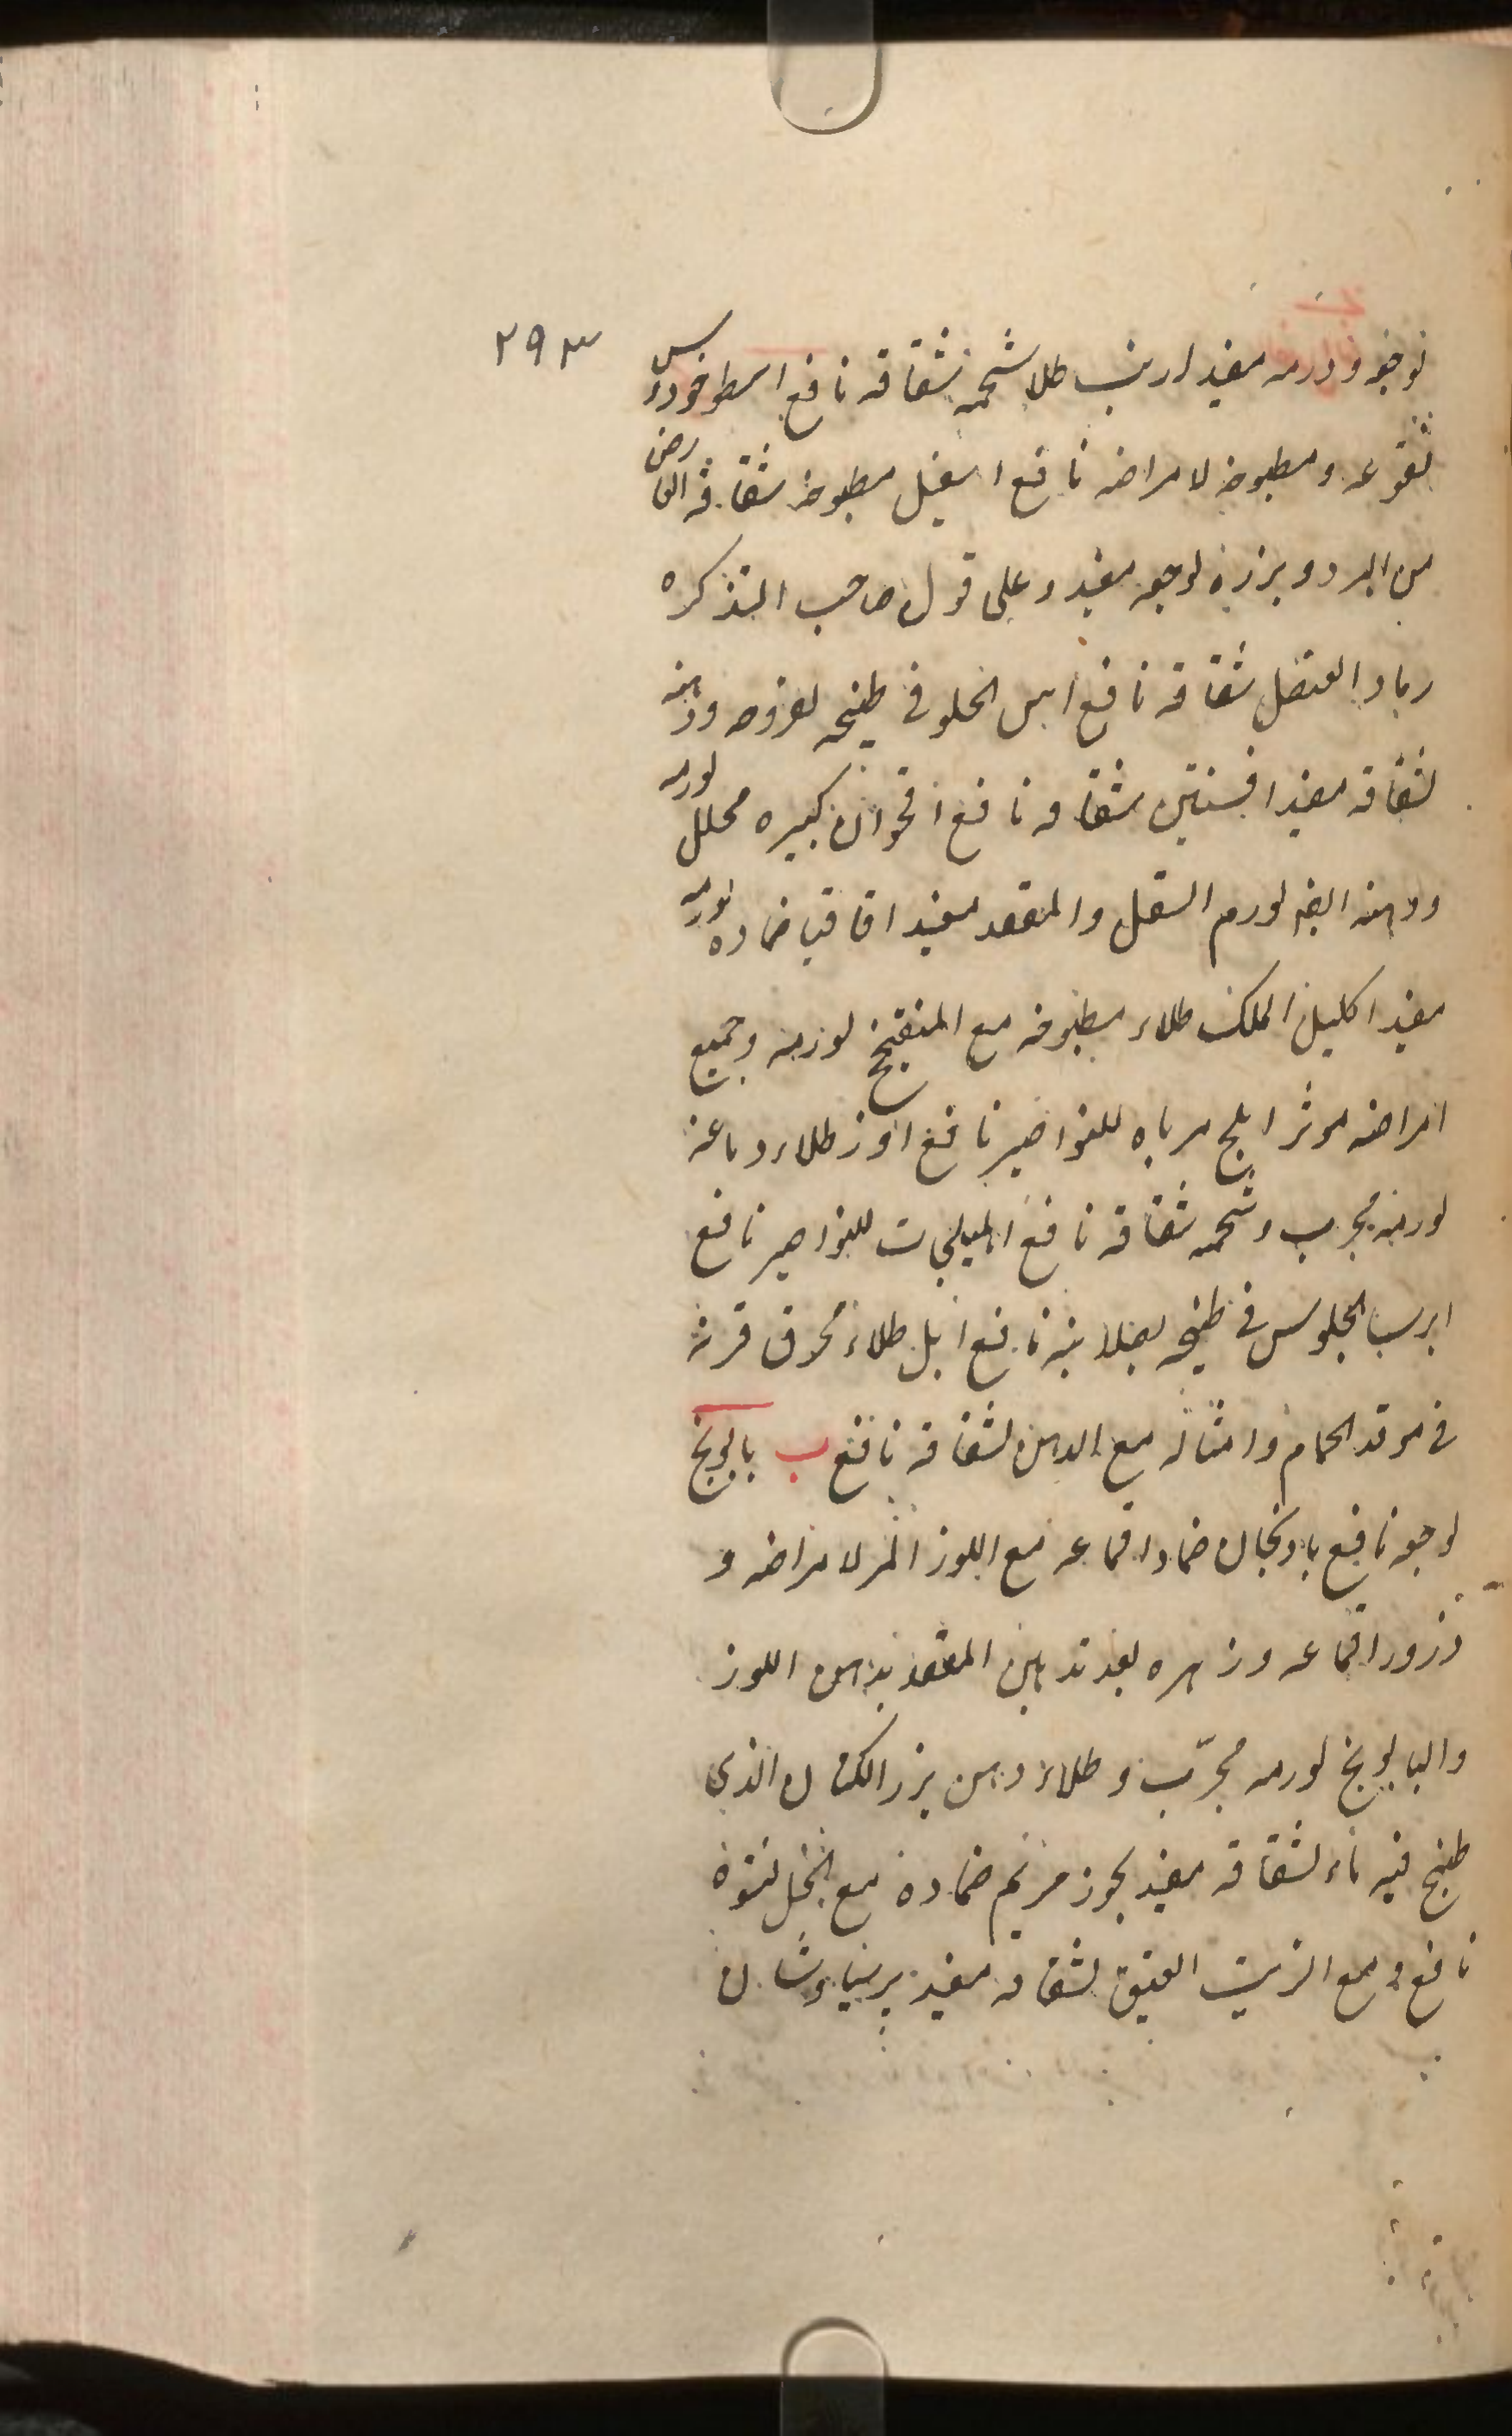 ٢٩٣
لوجعه و ورمه مفيد ارنب طلا شحمه لشقاقه نافع اسطوخودوس
نقوعه ومطبوخه لامراضه نافع اسقيل مطبوخه شقاقه العارض
من البرد و بزره لوجعه مفيد وعلى قول صاحب التذكره
رماد العنصل شقاقه نافع اس الجلوس فى طبيخه لخروجه ودهنه
لشقاقه مفيد افسنتين شقاقه نافع اقحوان كبيره محلل لورمه
ودهنه ايضا لورم السفل والمقعد مفيد اقاقيا ضماده لورمه
مفيد اكليل الملك طلاء مطبوخه مع الميفختج لورمه وجميع
امراضه موثر املج مرباه للنواصير نافع اوز طلاء دماغه
لورمه مجرب وشحمه شقاقه نافع اهليلجات للنواصير نافع
ايرسا الجلوس فى طبيخه لصلابته نافع ايل طلاء محرق قرنه
فى موقد الحمام وامثاله مع الدهن لشقاقه نافع ب بابونج
لوجعه نافع بادنجان ضماد اقماعه مع اللوز المر لامراضه و
ذرور اقماعه وزهره بعد تدهين المقعد بدهن اللوز
والبابونج لورمه مجرّب و طلاء دهن بزر الكتان الذى
طبخ فيه ماء لشقاقه مفيد بخور مريم ضماده مع الخل لنتوه
نافع و مع الزيت العتيق لشقاقه مفيد برسياوشان